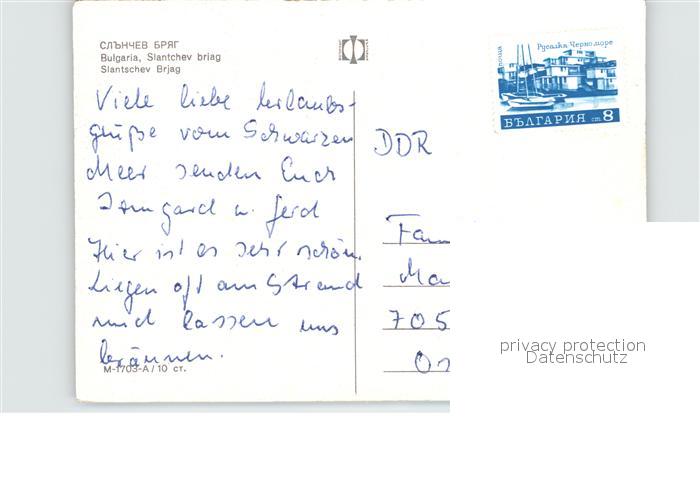 СЛЪНЧЕВ БРЯГ
Bulgaria, Slantchev briag
Slantschev Brjag
Viele liebe Urlaubs-
grüße vom Schwarzen
Meer senden Euch
Irmgard u. Gerd
Hier ist es sehr schön.
Liegen oft am Strand
und lassen uns
bräunen.
М-1703-А / 10 ст.
поща
Русалка-Черно море
БЪЛГАРИЯ ст 8
DDR
Fam
Ma
705
privacy protection
Datenschutz